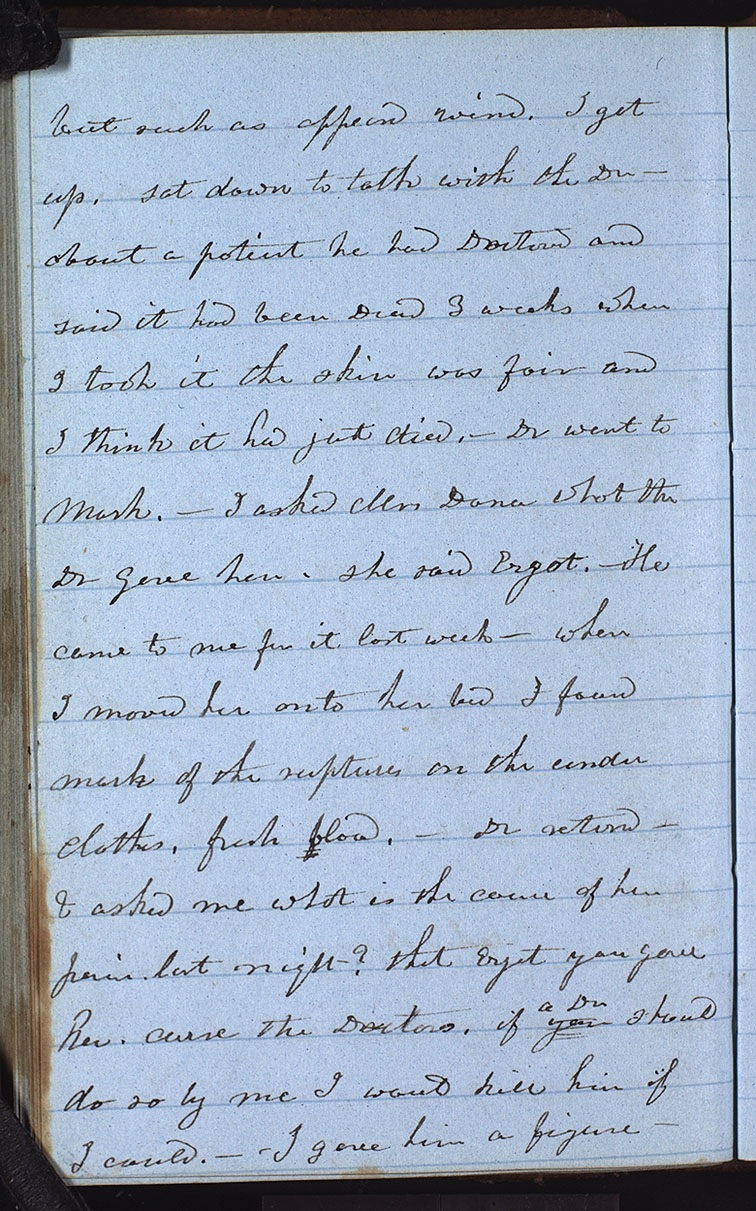 but such as appeard wind. I got
up. sat down to talk with the Dr —
about a patient he had Doctord and
said it had been Dead 3 weeks when
I took it the skin was fair and
I think it had just died. — Dr went to
Mark. — I asked Mrs Dana what the
Dr gave her. she said Ergot. — He
came to me for it last week — when
I moved her onto her bed I found
mark of the ruptures on the under
clothes. fresh flow. — Dr returd —
& asked me what is the cause of her
pain last night? that Ergot you gave
her. curse the Doctors. if a Dr should
do so by me I would kill him if
I could. — - I gave him a figure —